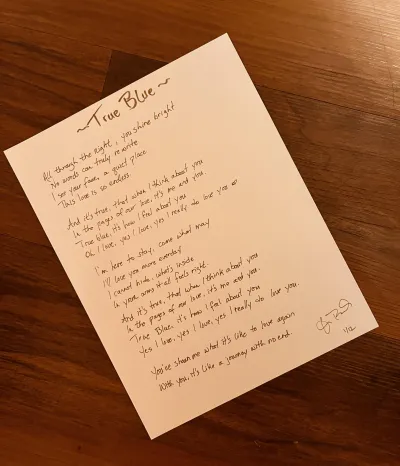 ~ True Blue ~
All through the night, you shine bright
No words can truly rewrite
I see your face, a quiet place
This love is so endless
And it's true, that when I think about you
In the pages of our love, it's me and you.
True Blue, it's how I feel about you
Oh I love, yes I love, yes I really do love you
I'm here to stay, come what may
I'll love you more everday
I cannot hide, what's inside
In your arms it all feels right.
And it's true, that when I think about you
In the pages of our love, it's me and you.
True Blue, it's how I feel about you
Yes I love, yes I love, yes I really do love you.
You've shown me what it's like to love again
With you, it's like a journey with no end.
1/12